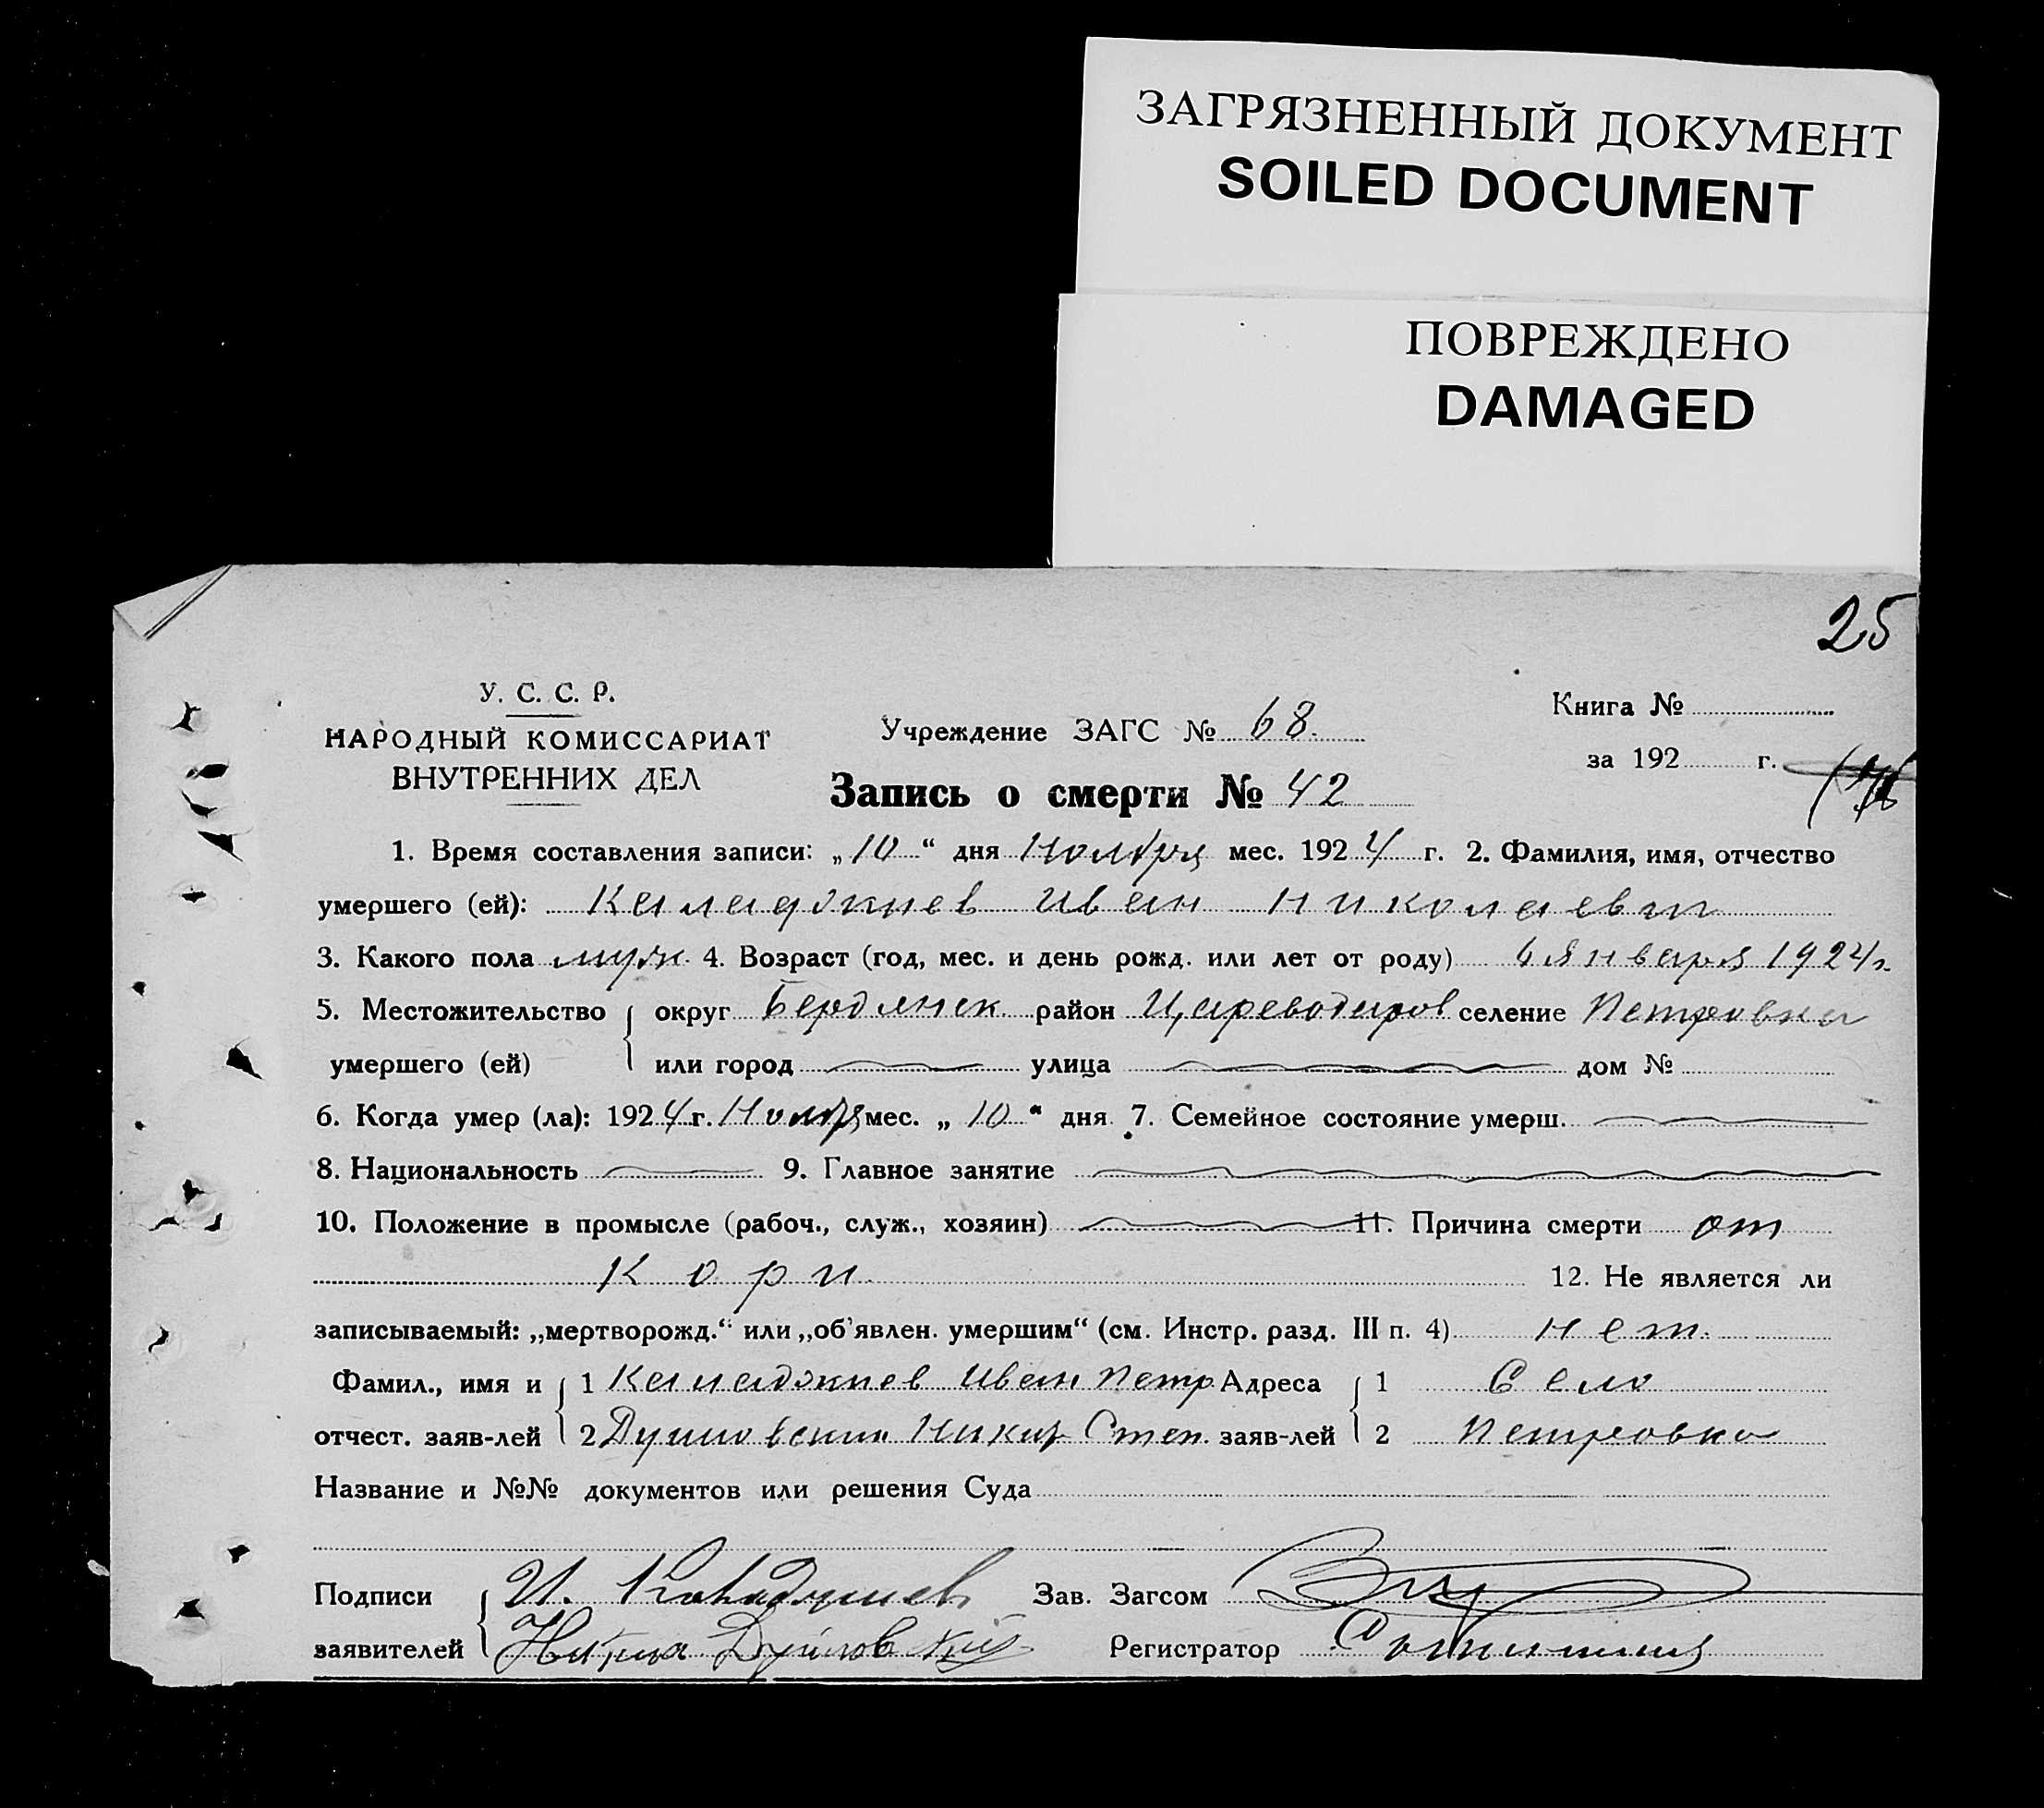 ЗАГРЯЗНЕННЫЙ ДОКУМЕНТ
SOILED DOCUMENT
ПОВРЕЖДЕНО
DAMAGED
25
У. С. С. Р.
НАРОДНЫЙ КОМИССАРИАТ
ВНУТРЕННИХ ДЕЛ
Учреждение ЗАГС № 68.
Книга №
за 192 г.
Запись о смерти № 42
1. Время составления записи: „10“ дня Ноября мес. 1924 г. 2. Фамилия, имя, отчество
умершего (ей): Каладжиев Иван Николаевич
3. Какого пола муж. 4. Возраст (год, мес. и день рожд. или лет от роду) 6 января 1924 г.
5. Местожительство округ Бердянск район Цареводаров селение Петровка
умершего (ей) или город улица дом №
6. Когда умер (ла): 1924 г. Ноября мес. „10“ дня 7. Семейное состояние умерш.
8. Национальность 9. Главное занятие
10. Положение в промысле (рабоч., служ., хозяин) 11. Причина смерти от
Кори
12. Не является ли
записываемый: „мертворожд.“ или „об’явлен. умершим“ (см. Инстр. разд. III п. 4) нет.
Фамил., имя и 1 Каладжиев Иван Петр. Адреса 1 Село
отчест. заяв-лей 2 Степ. заяв-лей 2 Петровка
Название и №№ документов или решения Суда
Подписи И. Зав. Загсом
заявителей Никита Регистратор